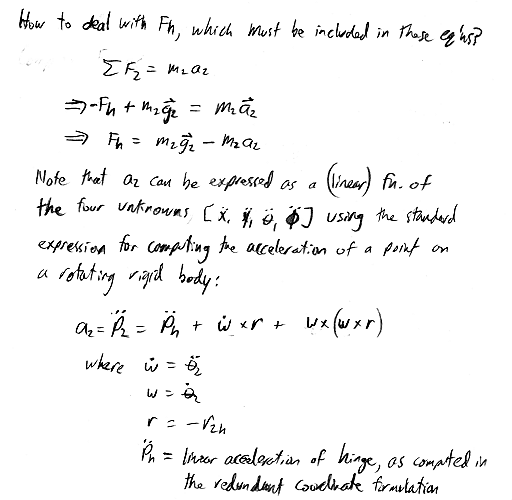 How to deal with Fh, which must be included in these eq'ns?
∑ F₂ = m₂a₂
⇒ -Fh + m₂g⃗₂ = m₂a⃗₂
⇒ Fh = m₂g⃗₂ - m₂a₂
Note that a₂ can be expressed as a (linear) fn. of
the four unknowns [ẍ, ÿ, θ̈, φ̈] using the standard
expression for computing the acceleration of a point on
a rotating rigid body:
a₂ = P̈₂ = P̈h + ẇ × r + w × (w × r)
where ẇ = θ̈₂
w = θ̇₂
r = -r₂h
P̈h = linear acceleration of hinge, as computed in
the redundant coordinate formulation